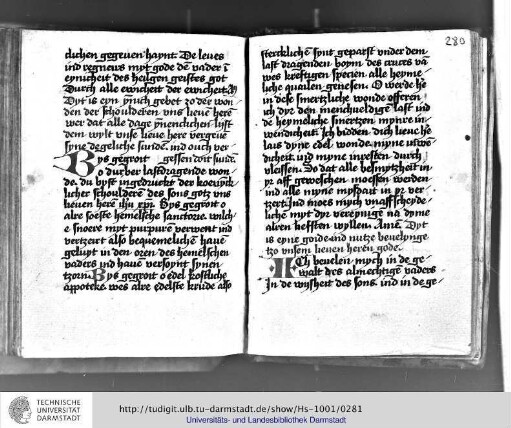 dichen gegeuen haynt. De leues
ind regneirs myt gode dē vader ī
eynicheit des heilgen geistes got
Durch alle ewicheit der ewicheit.
Dyt is eyn ynich gebet zo der won
den der schoulderen vns lieue here
wer dat alle dage ynencklichen lyst
dem wylt vnse lieue here vergeue
syne degeliche sunde. ind ouch ver
Bys gegroit gessen doit sunde.
o durber lastdragende won
de. du byst ingedruckt der
licher schoulderē des sons gotz vns
lieuen heren ihū xpī. Bys gegroit o
alre soeste hemelsche
e snoere myt purpure verwent ind
vertzert also bequemelichē haue
geluyt in den oren des hemelschen
vaders ind haue versoynt synen
tzorn. Bys gegroit o edel kostliche
appoteke. wes alre edelste krude also
280
sterckliche synt gepast vnder dem
last dragenden boym des cruces vā
wes kreftigen specien alle heyme
liche qualen genesen. O werde he
in dese smertzliche wonde offeren
ich dyr den menichueldige last ind
de heymeliche smertzen mynre in
wendicheit. Ich bidden dich lieue he
laes dyne edel wonde myne
dicheit. ind myne durch
vleissen. So dat alle besmytzheit in
yr aff geweschen moessen werden
ind alle myne mysdait in yr ver
tzert. Ind moes mych vnaffscheyde
lichē myt dyr vereynige na dyme
alren wyllen Amē. Dyt
is eyne goide ind nutze beuelynge
tzo vnsem lieuen heren gode.
ICh beuelen mych in de ge
walt des almechtigē vaders
In de wysheit des sons. ind in de ge
TECHNISCHE
UNIVERSITÄT
DARMSTADT
http://tudigit.ulb.tu-darmstadt.de/show/Hs-1001/0281
Universitäts- und Landesbibliothek Darmstadt